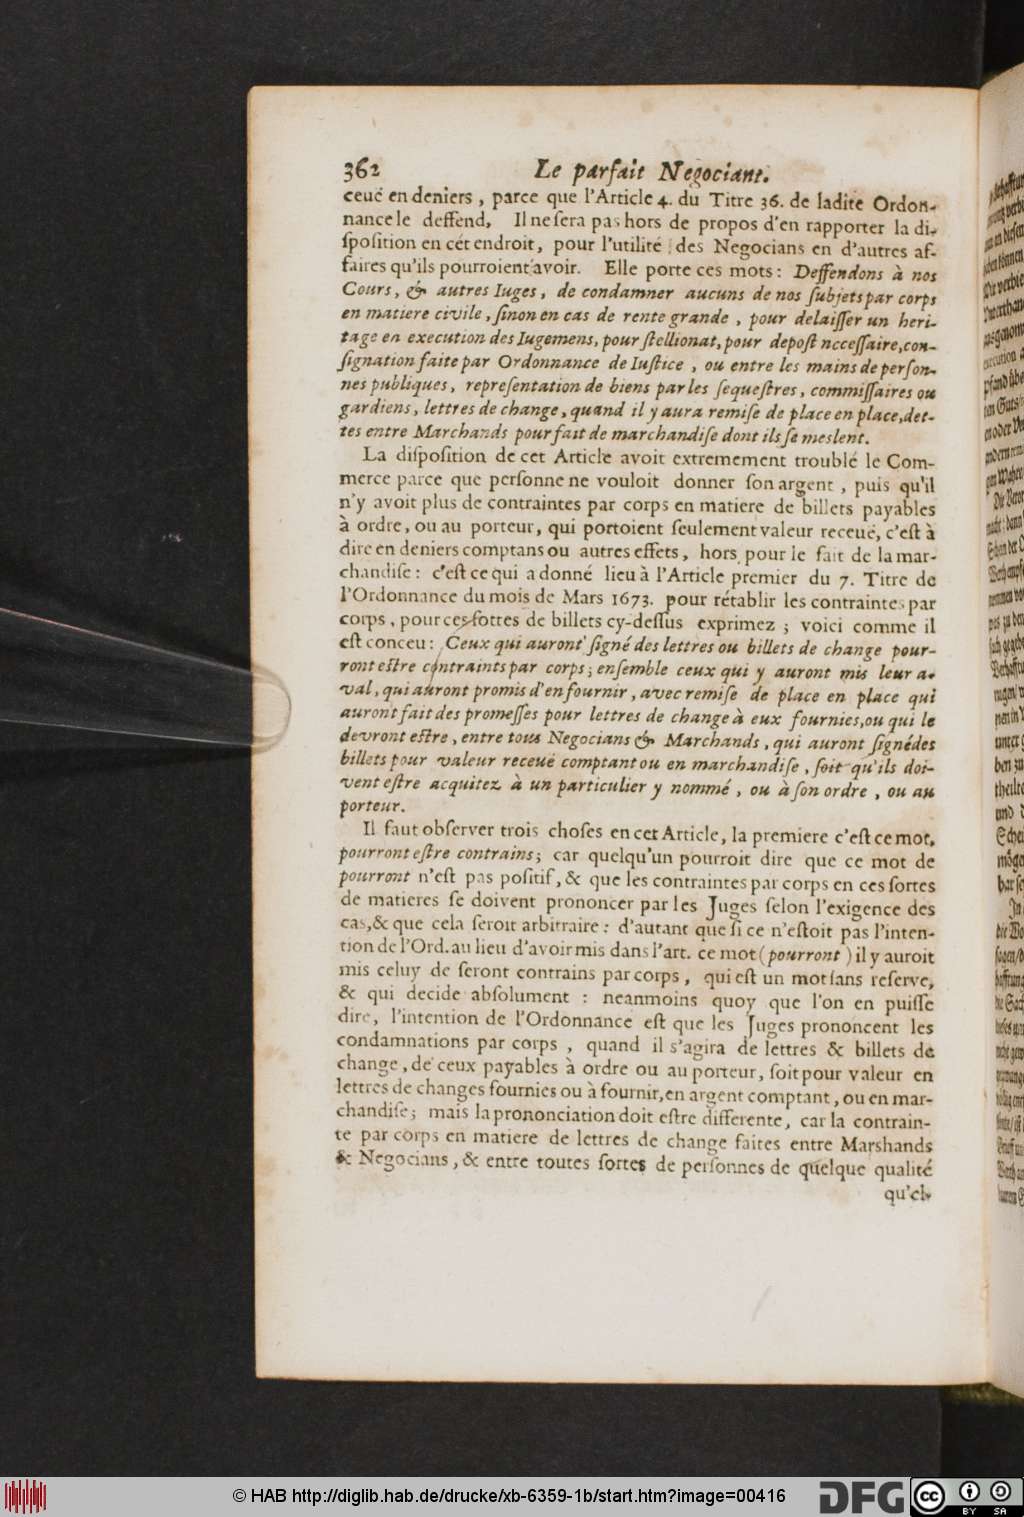 362 Le parfait Negociant.
ceuë en deniers, parce que l'Article 4. du Titre 36. de ladite Ordon-
nance le deffend, Il ne sera pas hors de propos d'en rapporter la di-
sposition en cét endroit, pour l'utilité des Negocians en d'autres af-
faires qu'ils pourroient avoir. Elle porte ces mots: Deffendons à nos
Cours, & autres Iuges, de condamner aucuns de nos subjets par corps
en matiere civile, sinon en cas de rente grande, pour delaisser un heri-
tage en execution des Iugemens, pour stellionat, pour depost nccessaire, con-
signation faite par Ordonnance de Iustice, ou entre les mains de person-
nes publiques, representation de biens par les sequestres, commissaires ou
gardiens, lettres de change, quand il y aura remise de place en place, det-
tes entre Marchands pour fait de marchandise dont ils se meslent.
La disposition de cet Article avoit extremement troublé le Com-
merce parce que personne ne vouloit donner son argent, puis qu'il
n'y avoit plus de contraintes par corps en matiere de billets payables
à ordre, ou au porteur, qui portoient seulement valeur receuë, c'est à
dire en deniers comptans ou autres effets, hors pour le fait de la mar-
chandise: c'est ce qui a donné lieu à l'Article premier du 7. Titre de
l'Ordonnance du mois de Mars 1673. pour rétablir les contraintes par
corps, pour ces sottes de billets cy-dessus exprimez; voici comme il
est conceu: Ceux qui auront signé des lettres ou billets de change pour-
ront estre contraints par corps; ensemble ceux qui y auront mis leur a-
val, qui auront promis d'en fournir, avec remise de place en place qui
auront fait des promesses pour lettres de change à eux fournies, ou qui le
devront estre, entre tous Negocians & Marchands, qui auront signé des
billets pour valeur receuë comptant ou en marchandise, soit qu'ils doi-
vent estre acquitez à un particulier y nommé, ou à son ordre, ou au
porteur.
Il faut observer trois choses en cet Article, la premiere c'est ce mot,
pourront estre contrains; car quelqu'un pourroit dire que ce mot de
pourront n'est pas positif, & que les contraintes par corps en ces sortes
de matieres se doivent prononcer par les Juges selon l'exigence des
cas, & que cela seroit arbitraire: d'autant que si ce n'estoit pas l'inten-
tion de l'Ord. au lieu d'avoir mis dans l'art. ce mot (pourront) il y auroit
mis celuy de seront contrains par corps, qui est un mot sans reserve,
& qui decide absolument: neanmoins quoy que l'on en puisse
dire, l'intention de l'Ordonnance est que les Juges prononcent les
condamnations par corps, quand il s'agira de lettres & billets de
change, de ceux payables à ordre ou au porteur, soit pour valeur en
lettres de changes fournies ou à fournir, en argent comptant, ou en mar-
chandise; mais la prononciation doit estre differente, car la contrain-
te par corps en matiere de lettres de change faites entre Marshands
& Negocians, & entre toutes sortes de personnes de quelque qualité
qu'el-
© HAB http://diglib.hab.de/drucke/xb-6359-1b/start.htm?image=00416 DFG CC BY SA